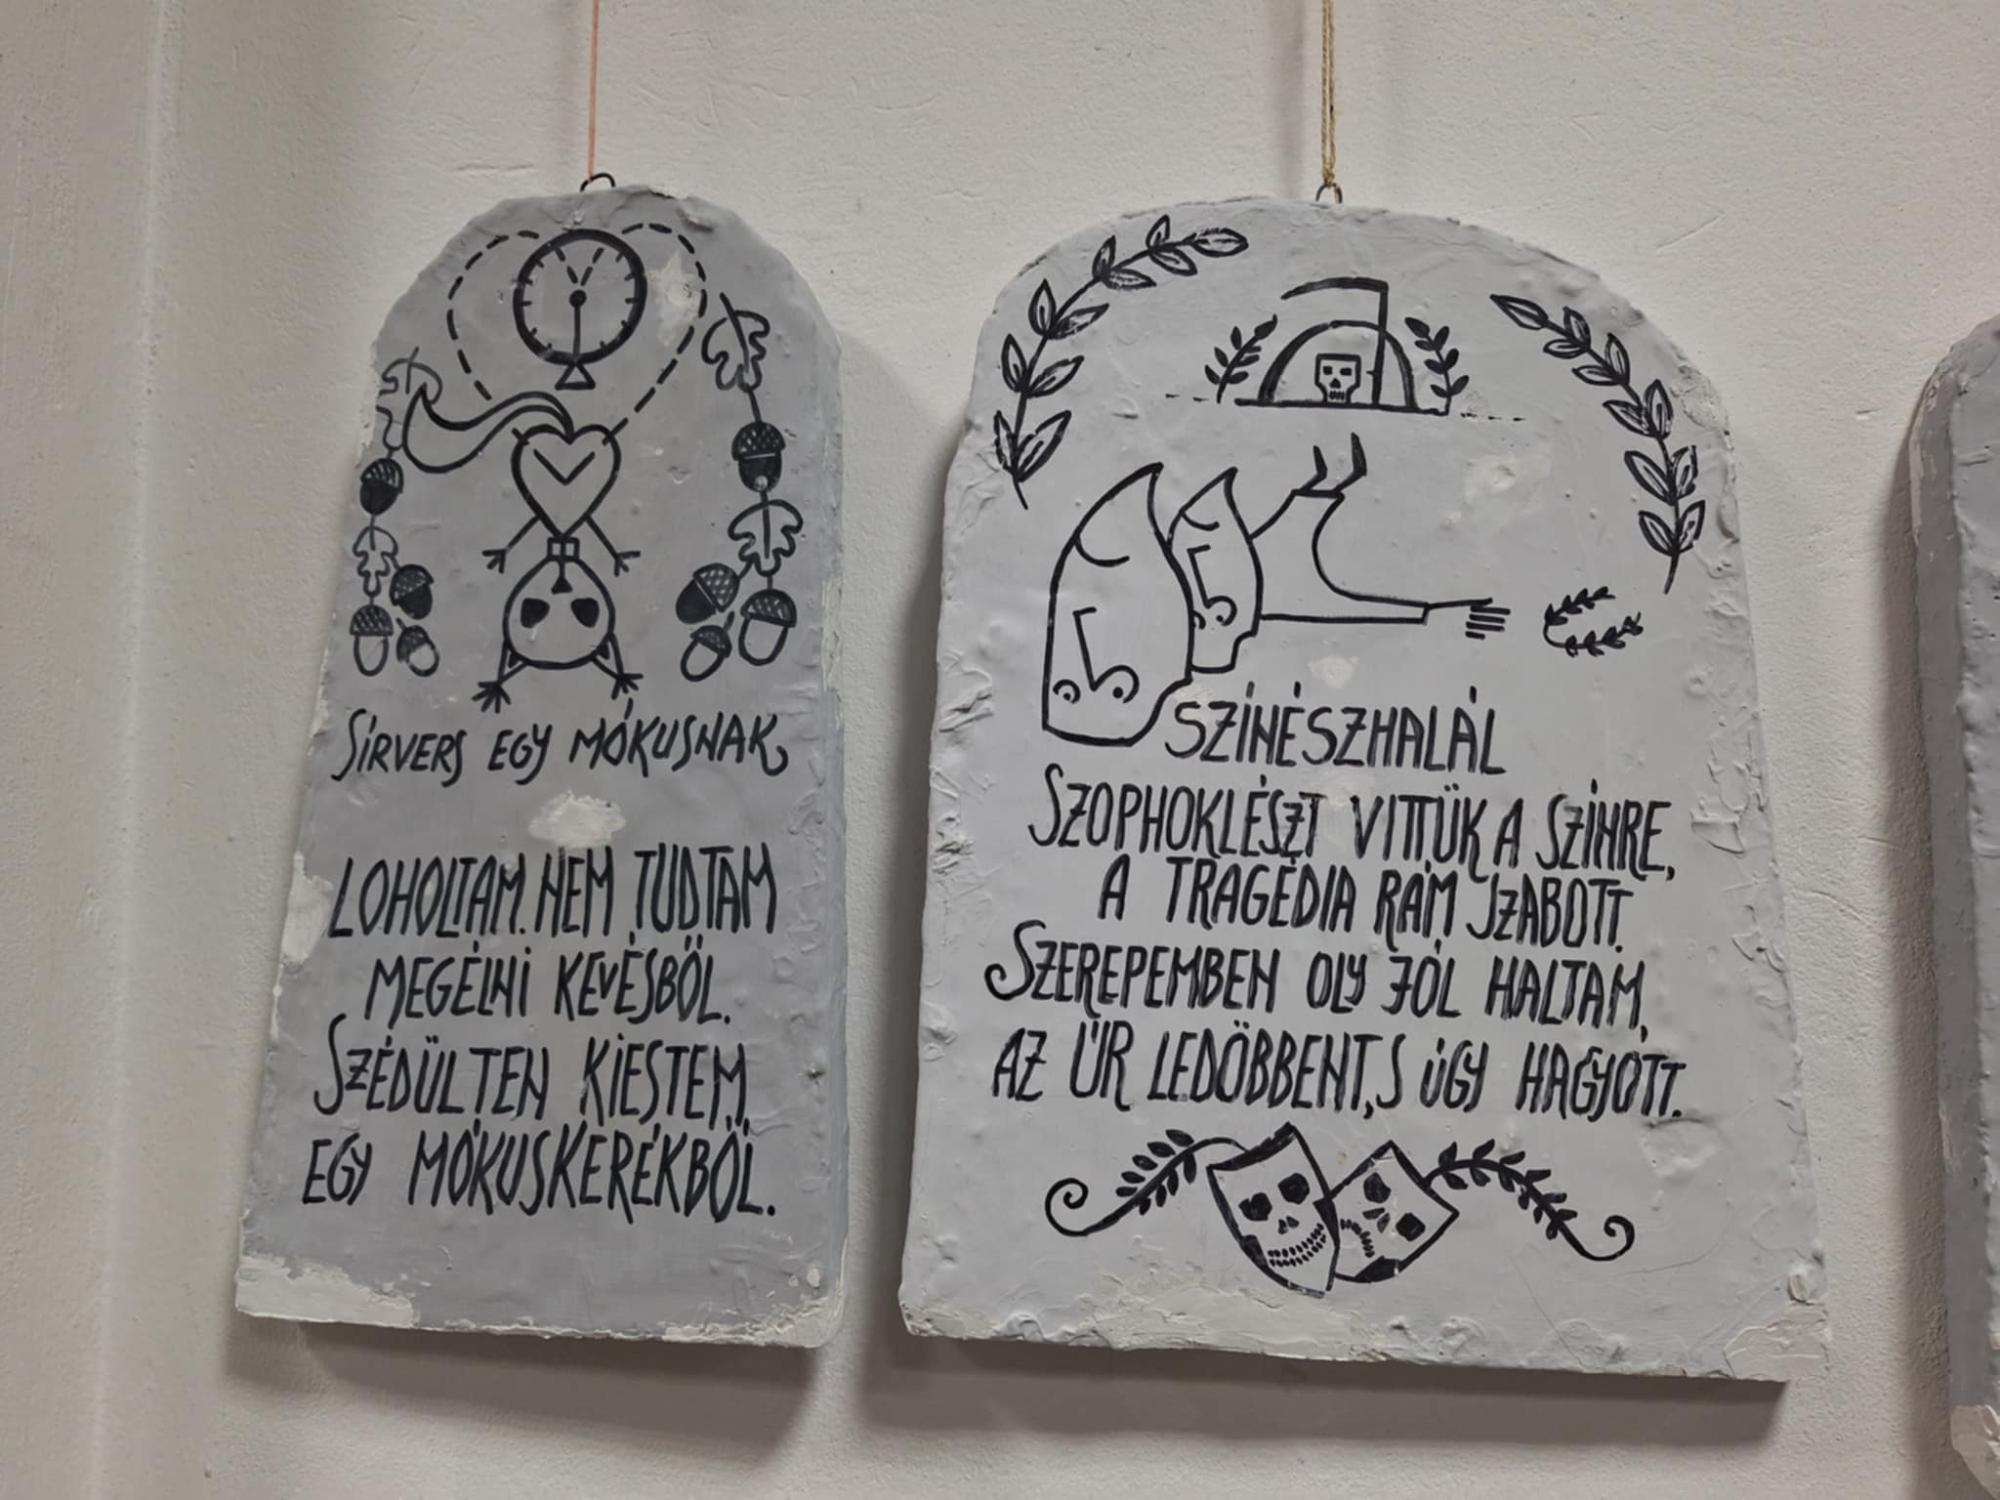 SÍRVERS EGY MÓKUSNAK
LOHOLTAM. NEM TUDTAM
MEGÉLNI KEVÉSBŐL.
SZÉDÜLTEN KIESTEM
EGY MÓKUSKERÉKBŐL.
SZÍNÉSZHALÁL
SZOPHOKLÉSZT VITTÜK A SZÍNRE,
A TRAGÉDIA RÁM SZABOTT.
SZEREPEMBEN OLY JÓL HALTAM,
AZ ÚR LEDÖBBENT, S ÚGY HAGYOTT.